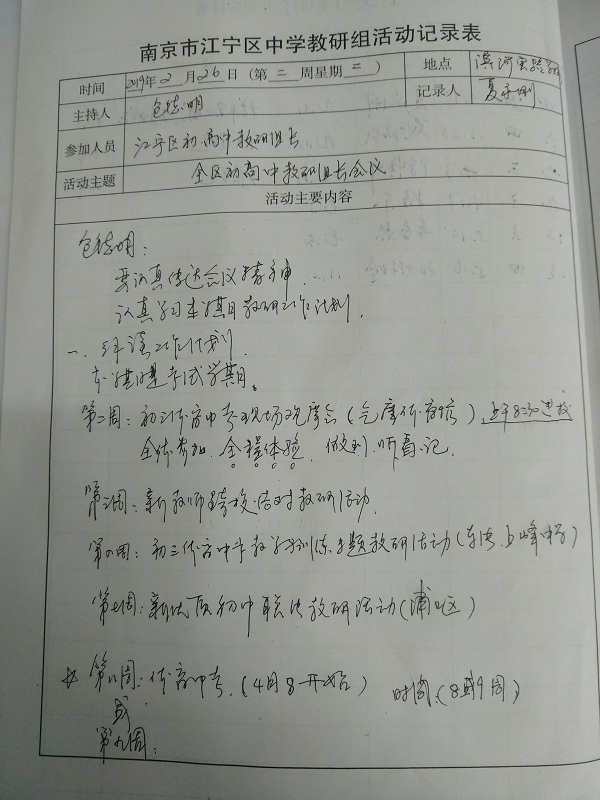 南京市江宁区中学教研组活动记录表
时间 2019年2月26日(第二周星期二) 地点 滨河实验
主持人 包德明 记录人 夏
参加人员 江宁区初、高中教研组长
活动主题 全区初高中教研组长会议
活动主要内容
包德明:
要认真传达会议精神.
认真学习本学期教研工作计划.
一、 工作计划.
本学期是考试学期。
第二周:初三体育中考现场观摩会( 体育 ),上午8:30进校
全体参加.全程体验. 做到.听.看.记.
第三周:新教师跨校结对教研活动.
第四周:初三体育中考教学训练专题教研活动(东 上峰中学)
第七周:新优质初中联 教研活动(浦口区)
第八周:体育中考.(4月8开始) 时间.(8到9周)
或
第九周: